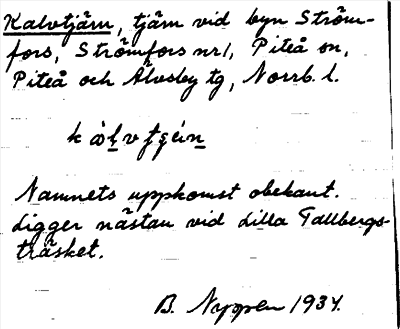 Kalvtjärn, tjärn vid byn Ström-
fors, Strömfors nr 1, Piteå sn,
Piteå och Älvsby tg, Norrb. l.
Namnets uppkomst obekant.
Ligger nästan vid Lilla Tallbergs-
träsket.
B. Nyppen 1934.